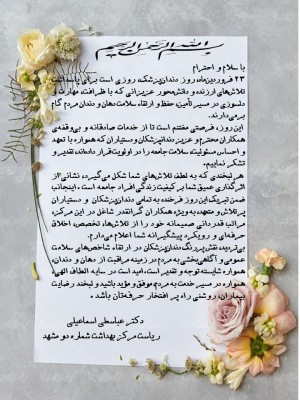 بسم الله الرحمن الرحیم
با سلام و احترام
۲۳ فروردین‌ماه، روز دندان‌پزشک، روزی است برای پاسداشت
تلاش‌های ارزنده و دقیق‌محور عزیزانی که با ظرافت، مهارت و
دلسوزی در مسیر تأمین، حفظ و ارتقاء سلامت دهان و دندان مردم گام
برمی‌دارند.
این روز، فرصتی مغتنم است تا از خدمات صادقانه و بی‌وقفه‌ی
همکاران محترم و دندان‌پزشکان و دستیاران که همواره با تعهد
و احساس مسئولیت، سلامت جامعه را در اولویت قرار داده‌اند، تقدیر و
تشکر نماییم.
هر لبخندی که به لطف تلاش‌های شما شکل می‌گیرد، نشانی از
اثرگذاری عمیق شما بر کیفیت زندگی افراد جامعه است. اینجانب
ضمن تبریک این روز فرخنده به تمامی دندان‌پزشکان و دستیاران
پرتلاش و متعهد، به ویژه همکاران گرانقدر شاغل در این مرکز،
مراتب قدردانی صمیمانه خود را از تلاش‌ها، تخصص، اخلاق
حرفه‌ای و رویکرد پیشگیرانه شما اعلام می‌دارم.
بی‌تردید، نقش پررنگ دندان‌پزشکان در ارتقاء شاخص‌های سلامت
عمومی و آگاهی‌بخشی به مردم در زمینه مراقبت از دهان و دندان،
همواره شایسته توجه و تقدیر است. امید است در سایه الطاف الهی،
همواره در مسیر خدمت به مردم موفق و مؤید باشید و لبخند رضایت
بیماران، روشنی راه پر افتخار حرفه‌تان باشد.
دکتر عباسعلی اسماعیلی
ریاست مرکز بهداشت شماره دو مشهد